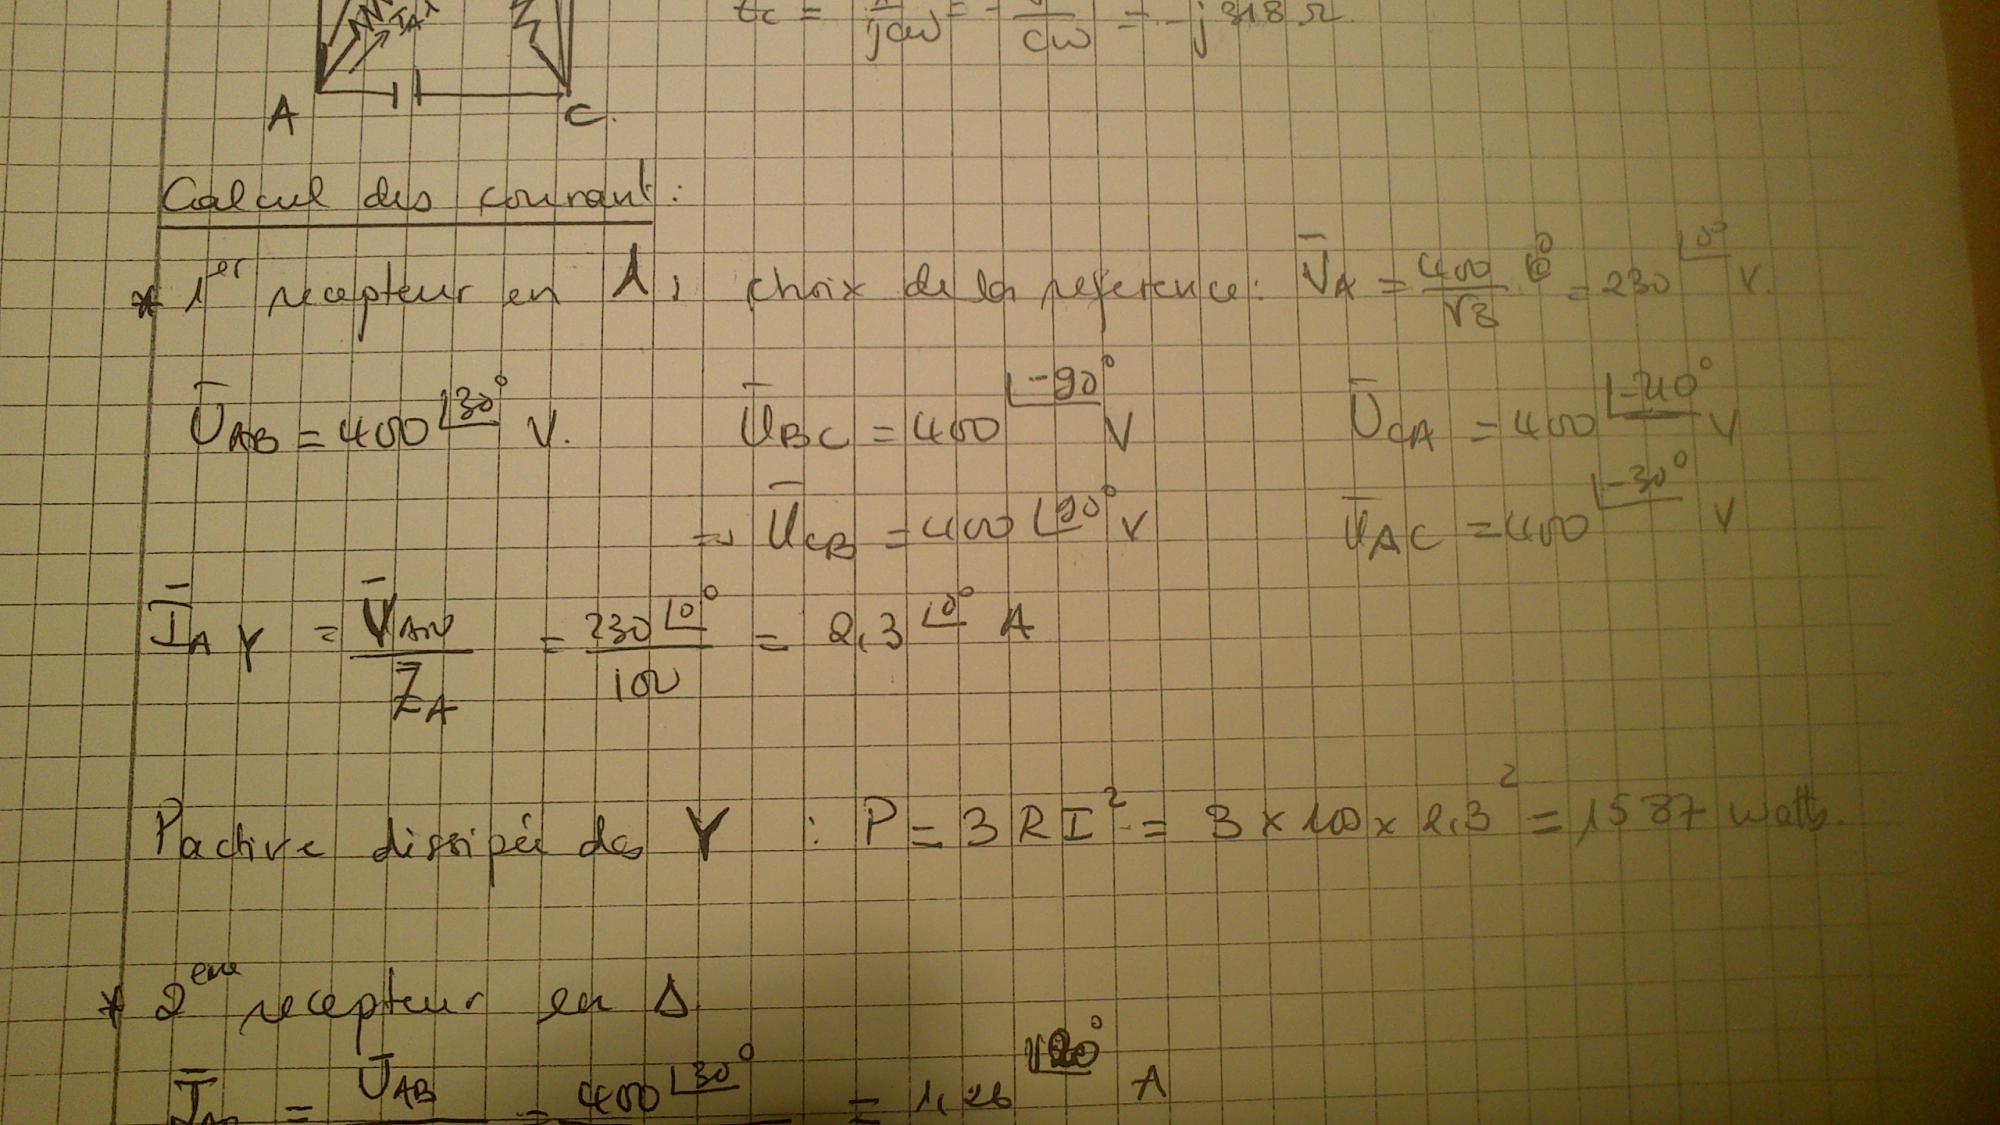 IAY
A C.
= 1/jCω = - j/Cω = -j 318 Ω
Calcul des courant:
* 1er recepteur en Y, choix de la reference: V̄A = 400/√3 0° = 230 ∠0° V.
ŪAB = 400 ∠30° V. ŪBC = 400 ∠-90° V ŪCA = 400 ∠-210° V
=> ŪCB = 400 ∠90° V ŪAC = 400 ∠-30° V
ĪAY = V̄AN/Z̄A = 230 ∠0°/100 = 2,3 ∠0° A
Pactive dissipée ds Y : P = 3 R I² = 3 x 100 x 2,3² = 1587 watts.
* 2eme recepteur en Δ
Ī = ŪAB = 400 ∠30° = 1,26 ∠120° A